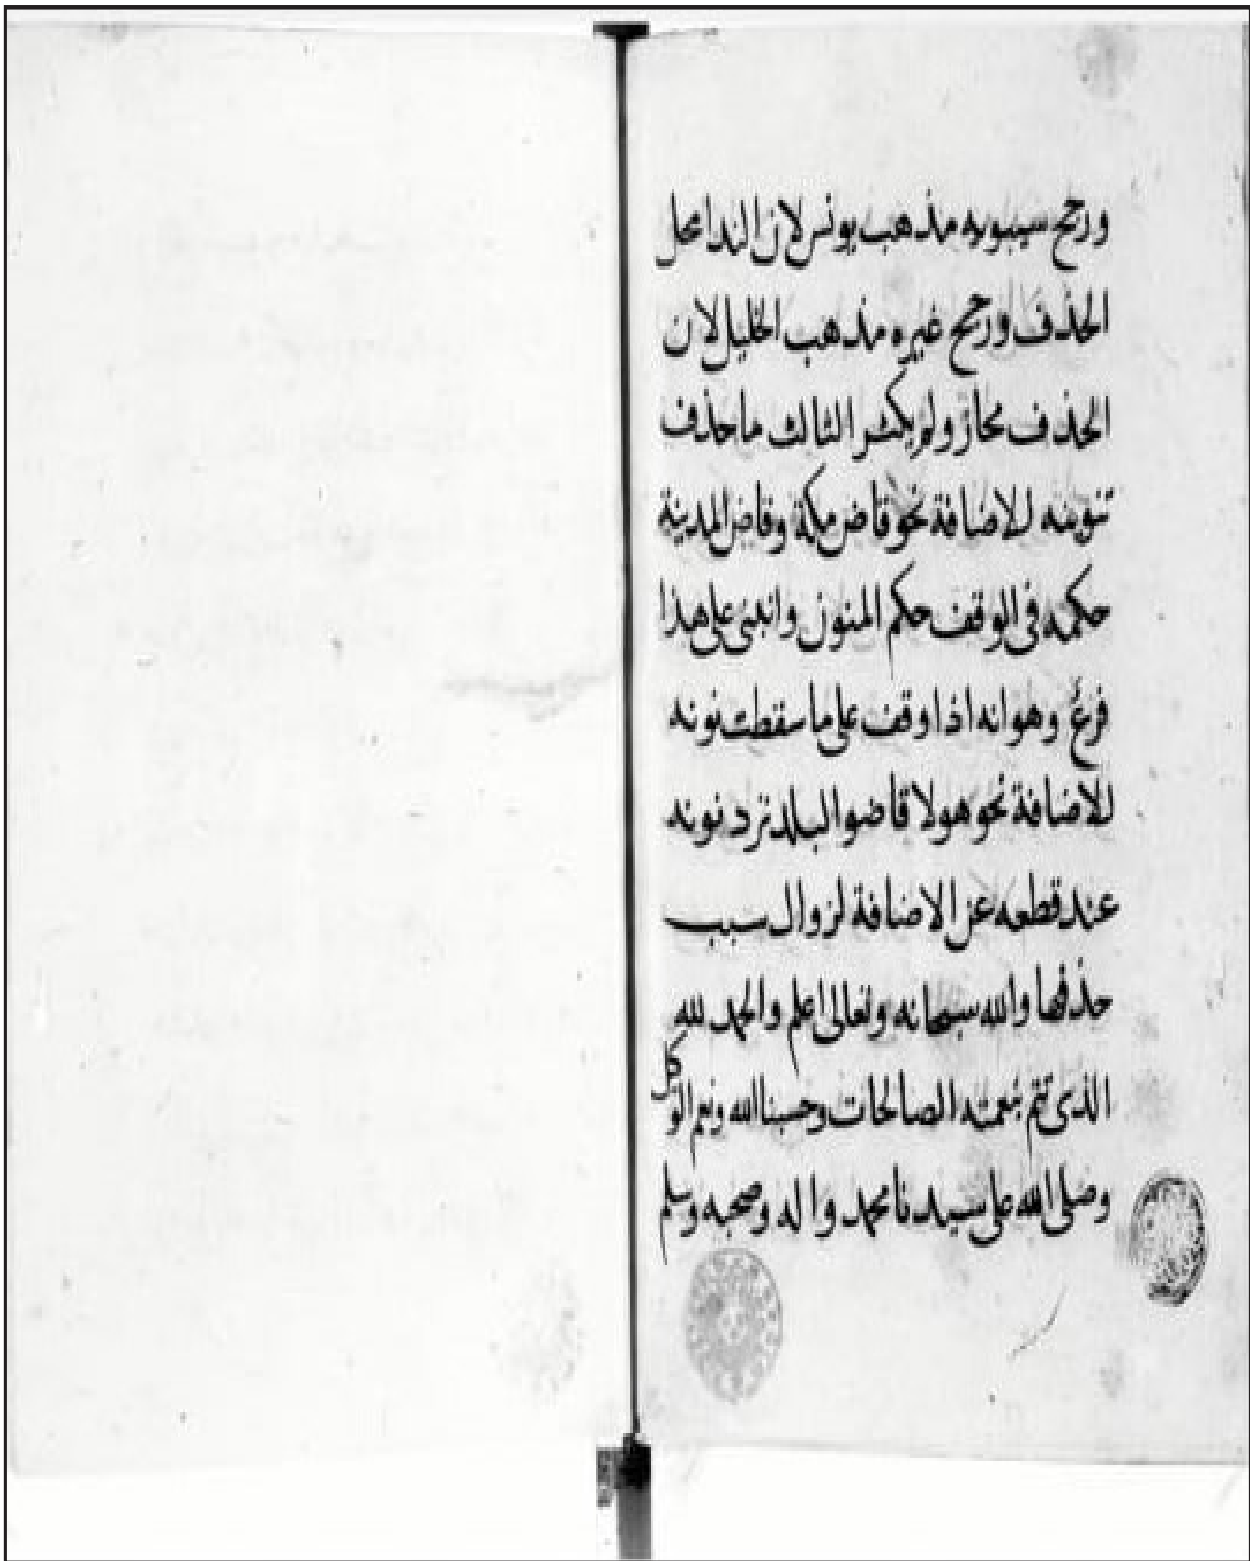 ورجح سيبويه مذهب يونس لان الندا محل
الحذف ورجح غيره مذهب الخليل لان
الحذف مجاز ولم يكثر الثالث ما حذف
تنوينه للاضافة نحو قاض مكة وقاض المدينة
حكمه في الوقف حكم المنون وانبنى على هذا
فرع وهو انه اذا وقف على ما سقطت نونه
للاضافة نحو هولا قاضوا البلد ترد نونه
عند قطعه عن الاضافة لزوال سبب
حذفها والله سبحانه وتعالى اعلم والحمد لله
الذي تتم بنعمته الصالحات وحسبنا الله ونعم الوكيل
وصلى الله على سيدنا محمد واله وصحبه وسلم